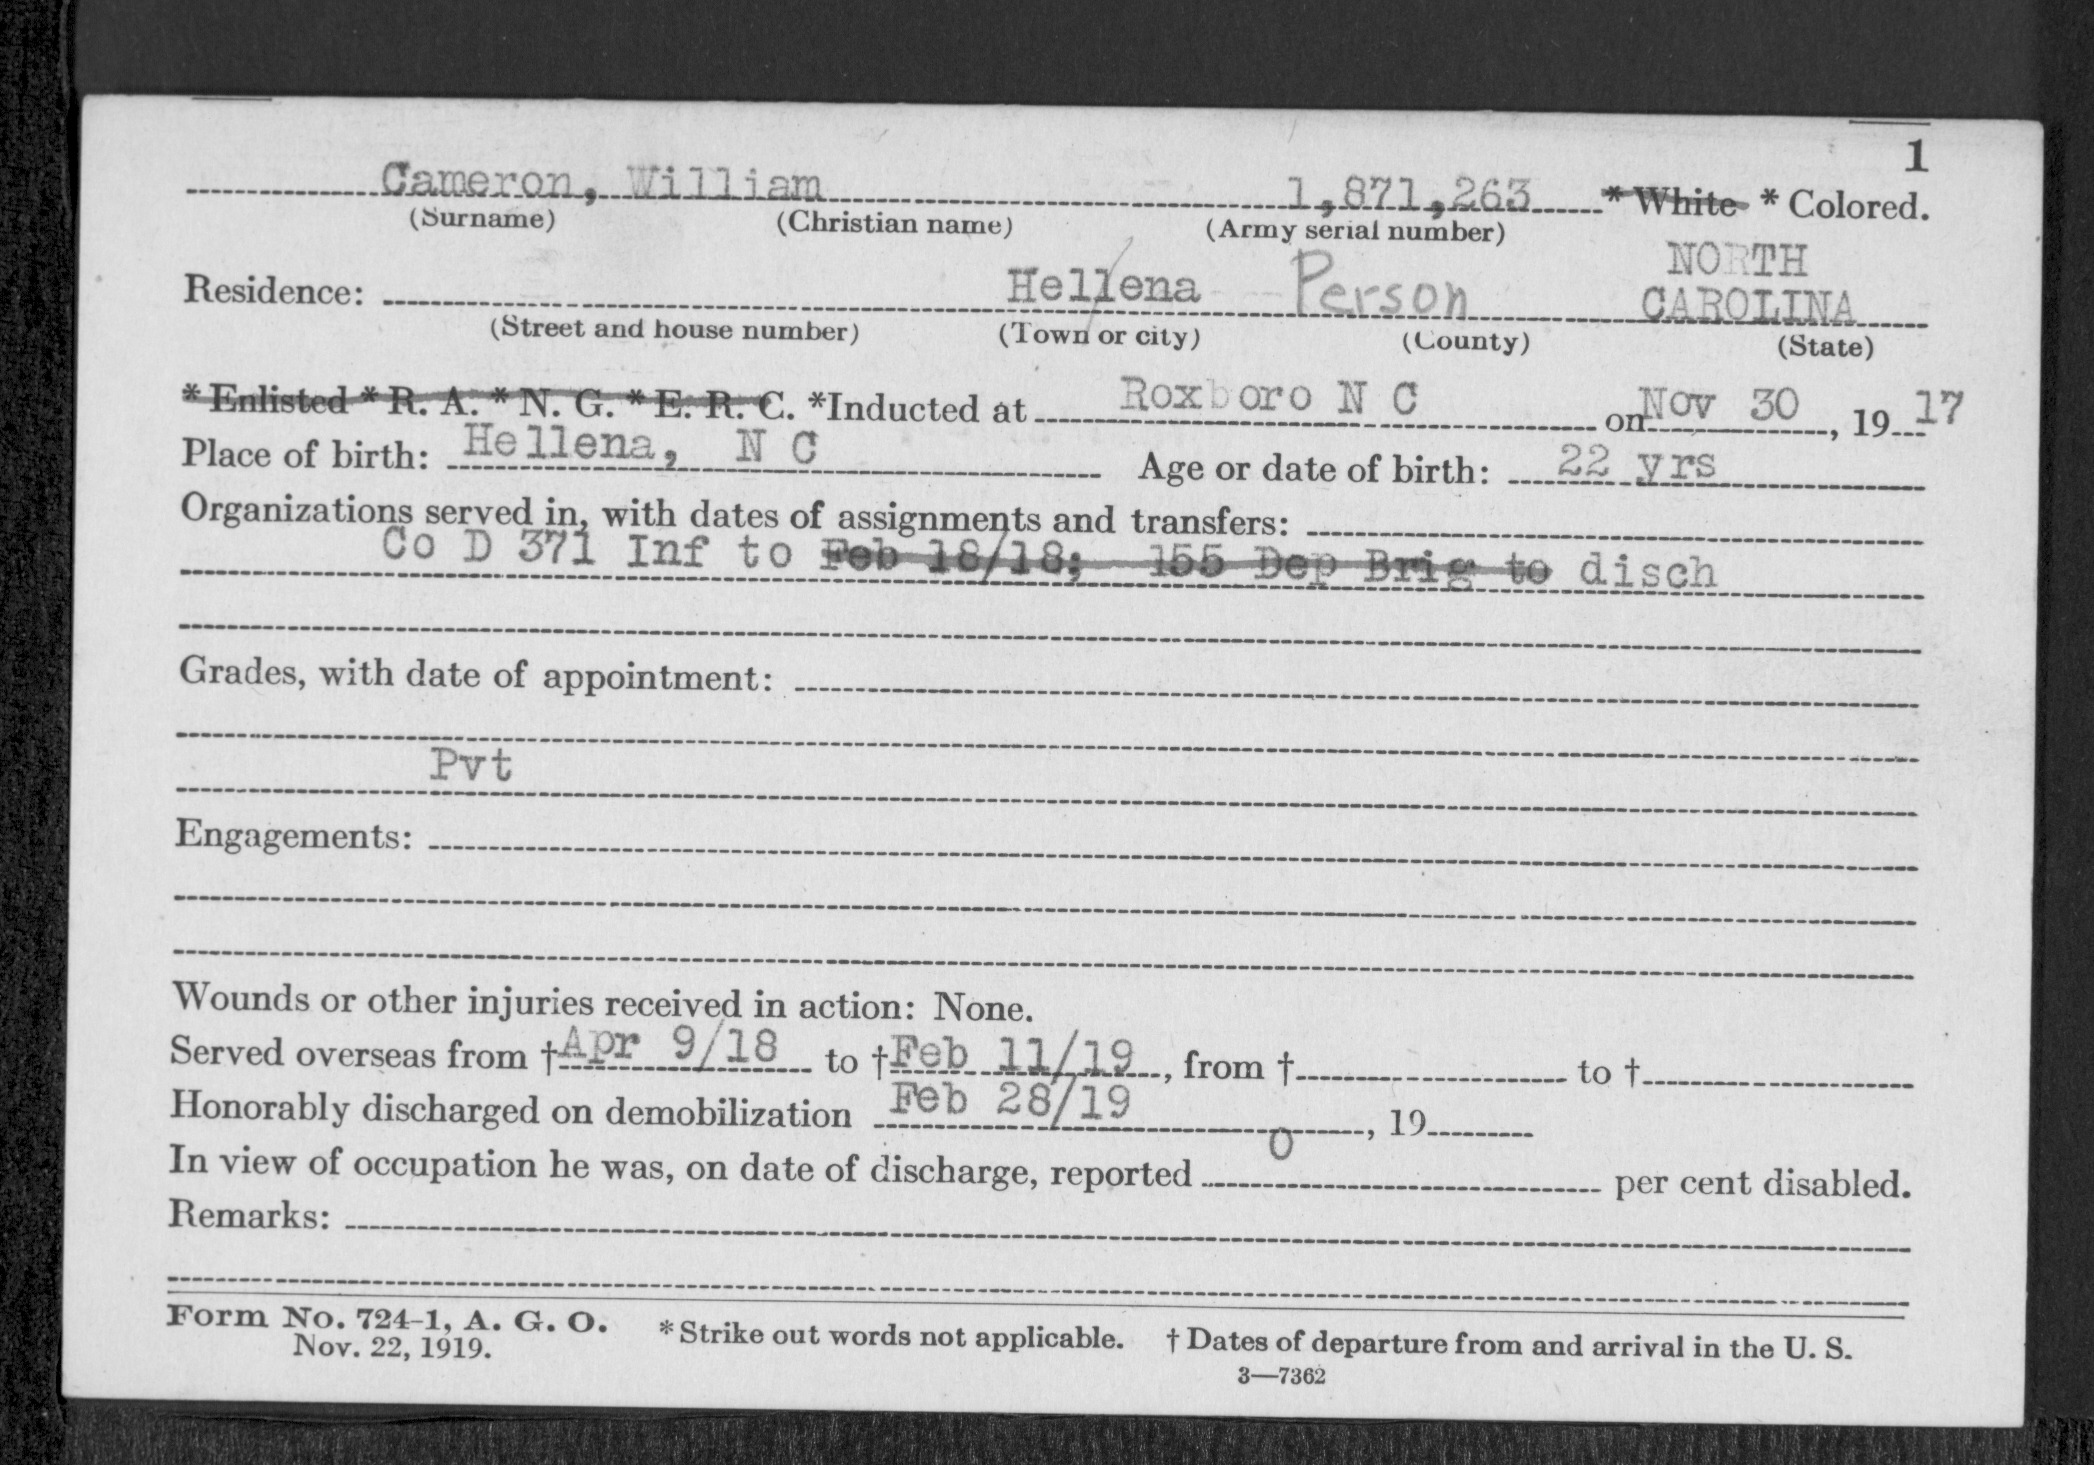 1
Cameron, William 1,871,263 * White * Colored.
(Surname) (Christian name) (Army serial number)
NORTH
Residence: Hellena Person CAROLINA
(Street and house number) (Town or city) (County) (State)
* Enlisted * R. A. * N. G. * E. R. C. *Inducted at Roxboro N C on Nov 30, 19 17
Place of birth: Hellena, N C Age or date of birth: 22 yrs
Organizations served in, with dates of assignments and transfers:
Co D 371 Inf to Feb 18/18; 155 Dep Brig to disch
Grades, with date of appointment:
Pvt
Engagements:
Wounds or other injuries received in action: None.
Served overseas from † Apr 9/18 to † Feb 11/19, from † to †
Honorably discharged on demobilization Feb 28/19, 19
In view of occupation he was, on date of discharge, reported 0 per cent disabled.
Remarks:
Form No. 724-1, A. G. O. * Strike out words not applicable. † Dates of departure from and arrival in the U. S.
Nov. 22, 1919.
3—7362